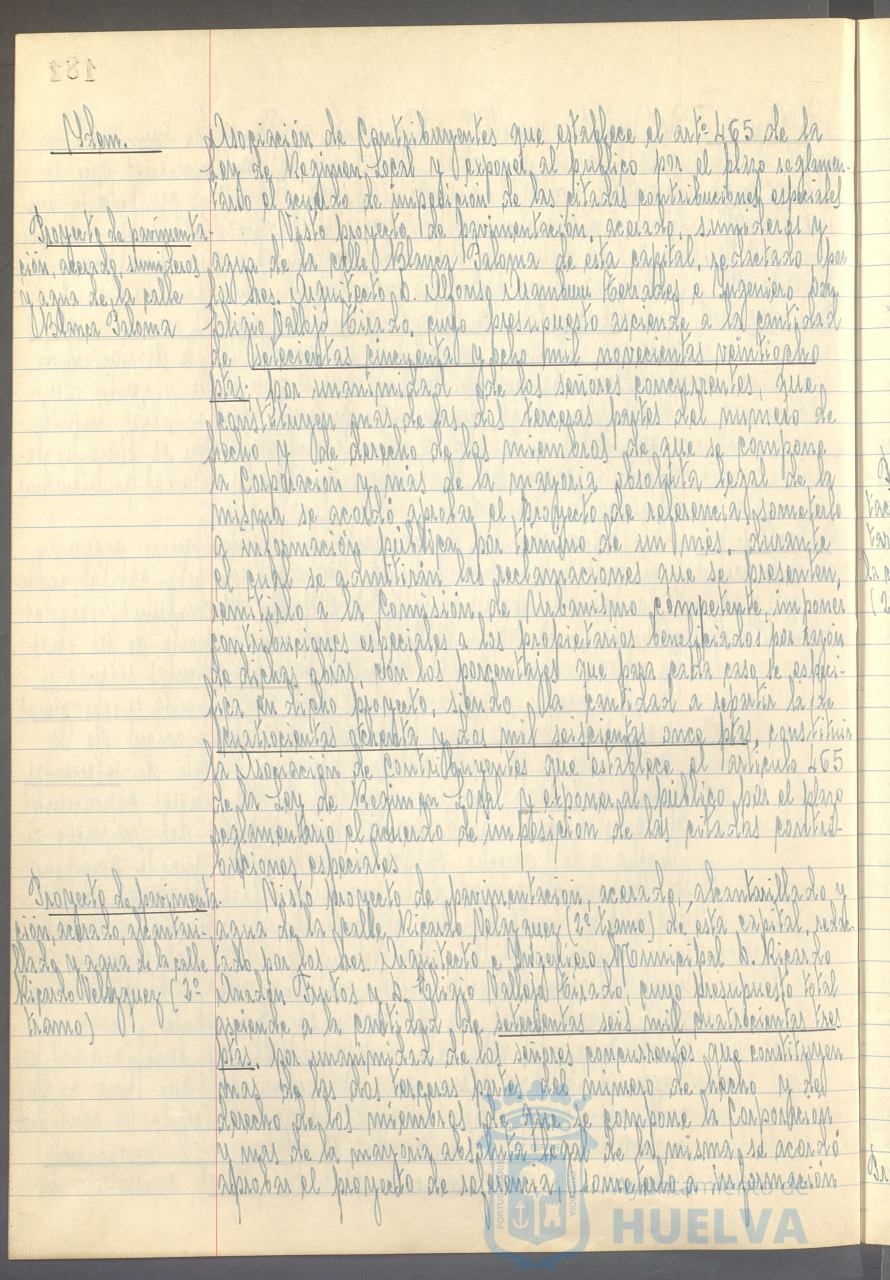 181
Idem.
Asociación de Contribuyentes que establece el artº 465 de la
Ley de Regimen Local y exponer al publico por el plazo reglamen-
tario el acuerdo de imposición de las citadas contribuciones especiales
Proyecto de pavimenta-
ción, acerado, sumideros
y agua de la calle
Blanca Paloma
Visto proyecto de pavimentación, acerado, sumideros y
agua de la calle Blanca Paloma de esta capital, redactado por
los Sres. Arquitecto D. Alfonso Aramburu Terrades e Ingeniero Don
Eligio Vallejo Tirado, cuyo presupuesto asciende a la cantidad
de setecientas cincuenta y ocho mil novecientas veintiocho
ptas; por unanimidad de los señores concurrentes, que
constituyen mas de las dos terceras partes del numero de
hecho y de derecho de los miembros de que se compone
la Corporación y mas de la mayoria absoluta legal de la
misma se acordó aprobar el proyecto de referencia, someterlo
a información pública por término de un mes, durante
el cual se admitirán las reclamaciones que se presenten,
remitirlo a la Comisión de Urbanismo competente, imponer
contribuciones especiales a los propietarios beneficiados por razón
de dichas obras, con los porcentajes que para cada caso se especi-
fica en dicho proyecto, siendo la cantidad a repartir la de
cuatrocientas ochenta y dos mil seiscientas once ptas, constituir
la Asociación de Contribuyentes que establece el artículo 465
de la Ley de Regimen Local y exponer al publico por el plazo
reglamentario el acuerdo de imposición de las citadas contri-
buciones especiales
Proyecto de pavimenta-
ción, acerado, alcantari-
llado y agua de la calle
Ricardo Velazquez (2º
tramo)
Visto proyecto de pavimentación, acerado, alcantarillado y
agua de la calle Ricardo Velazquez (2º tramo) de esta capital, redac-
tado por los Sres. Arquitecto e Ingeniero Municipal D. Ricardo
Anadón Frutos y D. Eligio Vallejo Tirado, cuyo presupuesto total
asciende a la cantidad de setecientas seis mil cuatrocientas tres
ptas. por unanimidad de los señores concurrentes que constituyen
mas de las dos terceras partes del numero de hecho y de
derecho de los miembros de que se compone la Corporación
y mas de la mayoria absoluta legal de la misma se acordó
aprobar el proyecto de referencia, someterlo a información
Ayuntamiento de
HUELVA